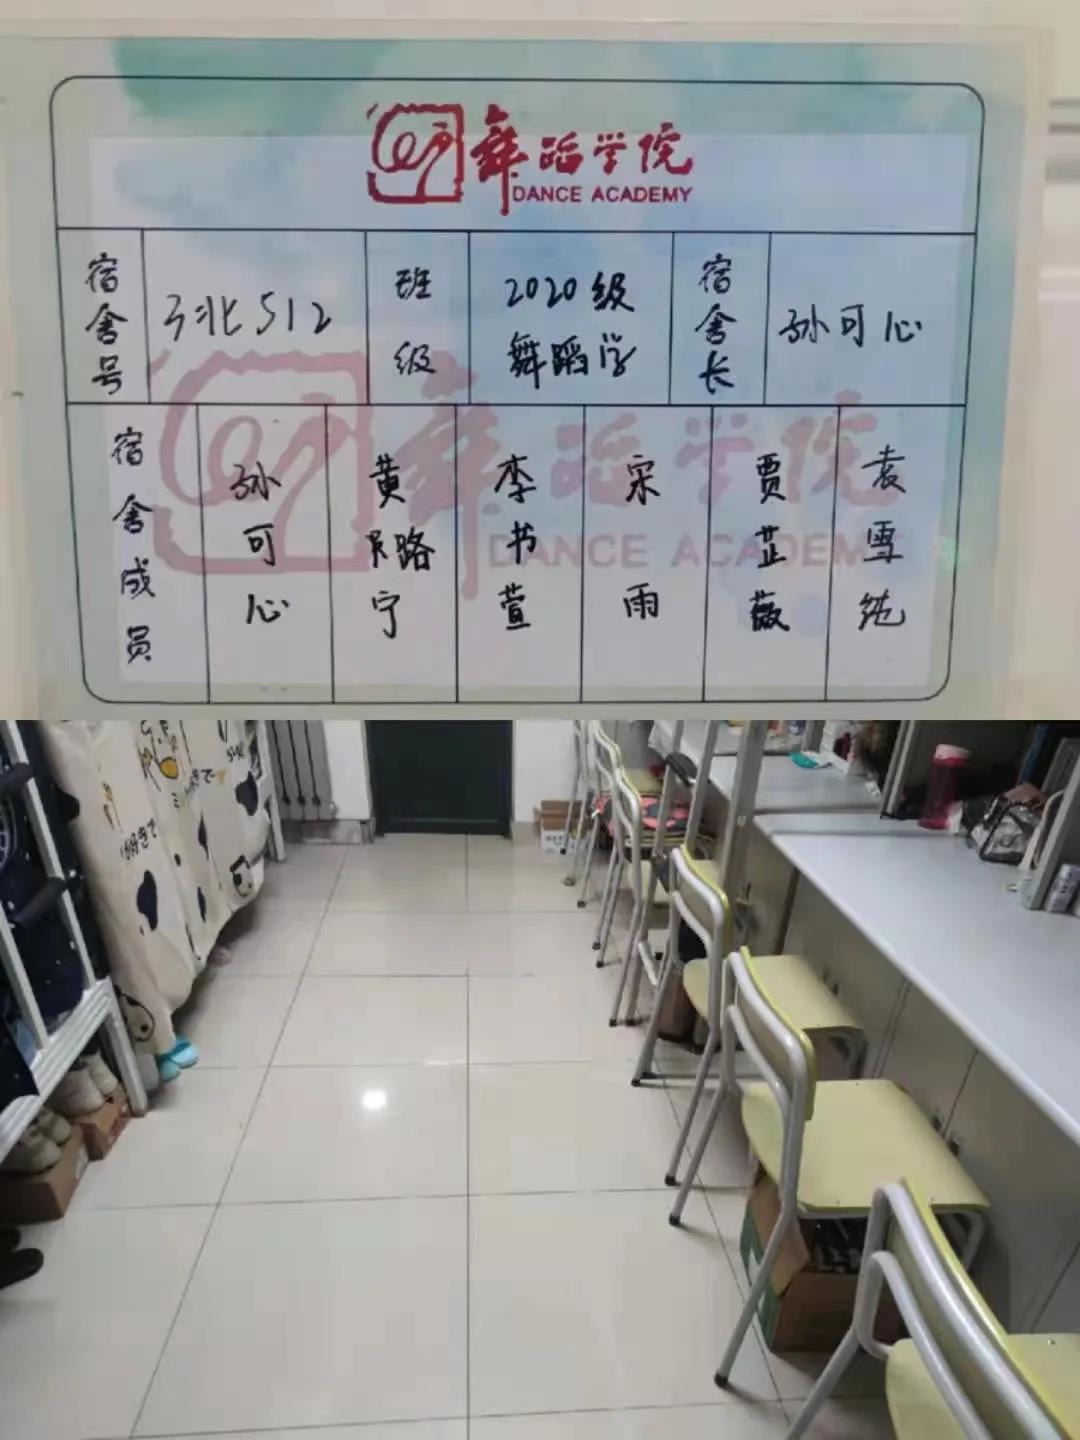 舞蹈学院
DANCE ACADEMY
宿舍号
3北512
班级
2020级
舞蹈学
宿舍长
孙可心
宿舍成员
孙可心
李书萱
宋雨
贾芷薇
袁雪纯
舞蹈学院
DANCE ACADEMY